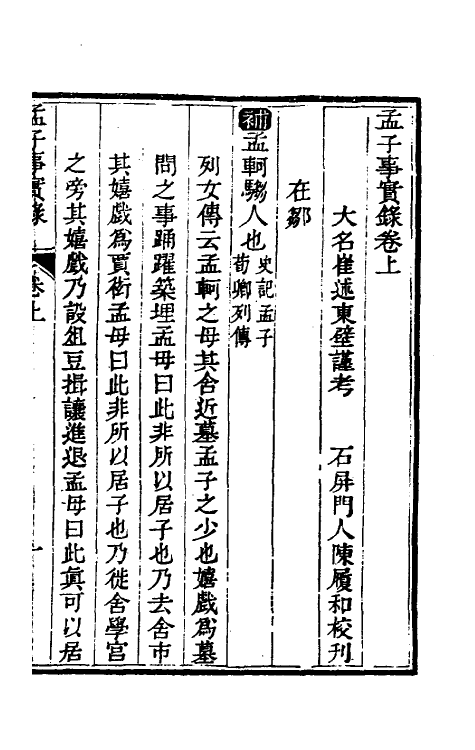 孟子事實錄卷上
大名崔述東壁謹考　石屏門人陳履和校刊
在鄒
補孟軻騶人也史記孟子荀卿列傳
列女傳云孟軻之母其舍近墓孟子之少也嬉戲爲墓
間之事踊躍築埋孟母曰此非所以居子也乃去舍市
其嬉戲爲賈衒孟母曰此非所以居子也乃徙舍學宮
之旁其嬉戲乃設俎豆揖讓進退孟母曰此眞可以居
孟子事實錄　卷上　一